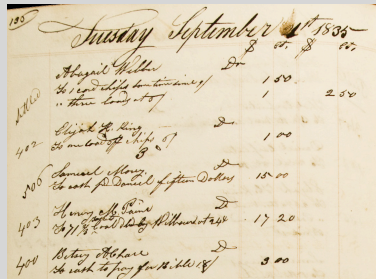 195
Tuesday September 1st 1835
$ cts. $ cts.
Abagail Wilber Dr
To 1 cord chips some time since 9/ 1 50
" three loads at 1 2 50
settled
402 Elijah H. King Dr
To one load of chips 6/ 1 00
506 Samuel Morey Dr
To cash pd Daniel fifteen Dollars 15 00
403 Henry M. Paine Dr
To 71 Coal by Wilbur at 24 17 20
400 Betsey Dr
To cash to pay for Bible 18/ 3 00